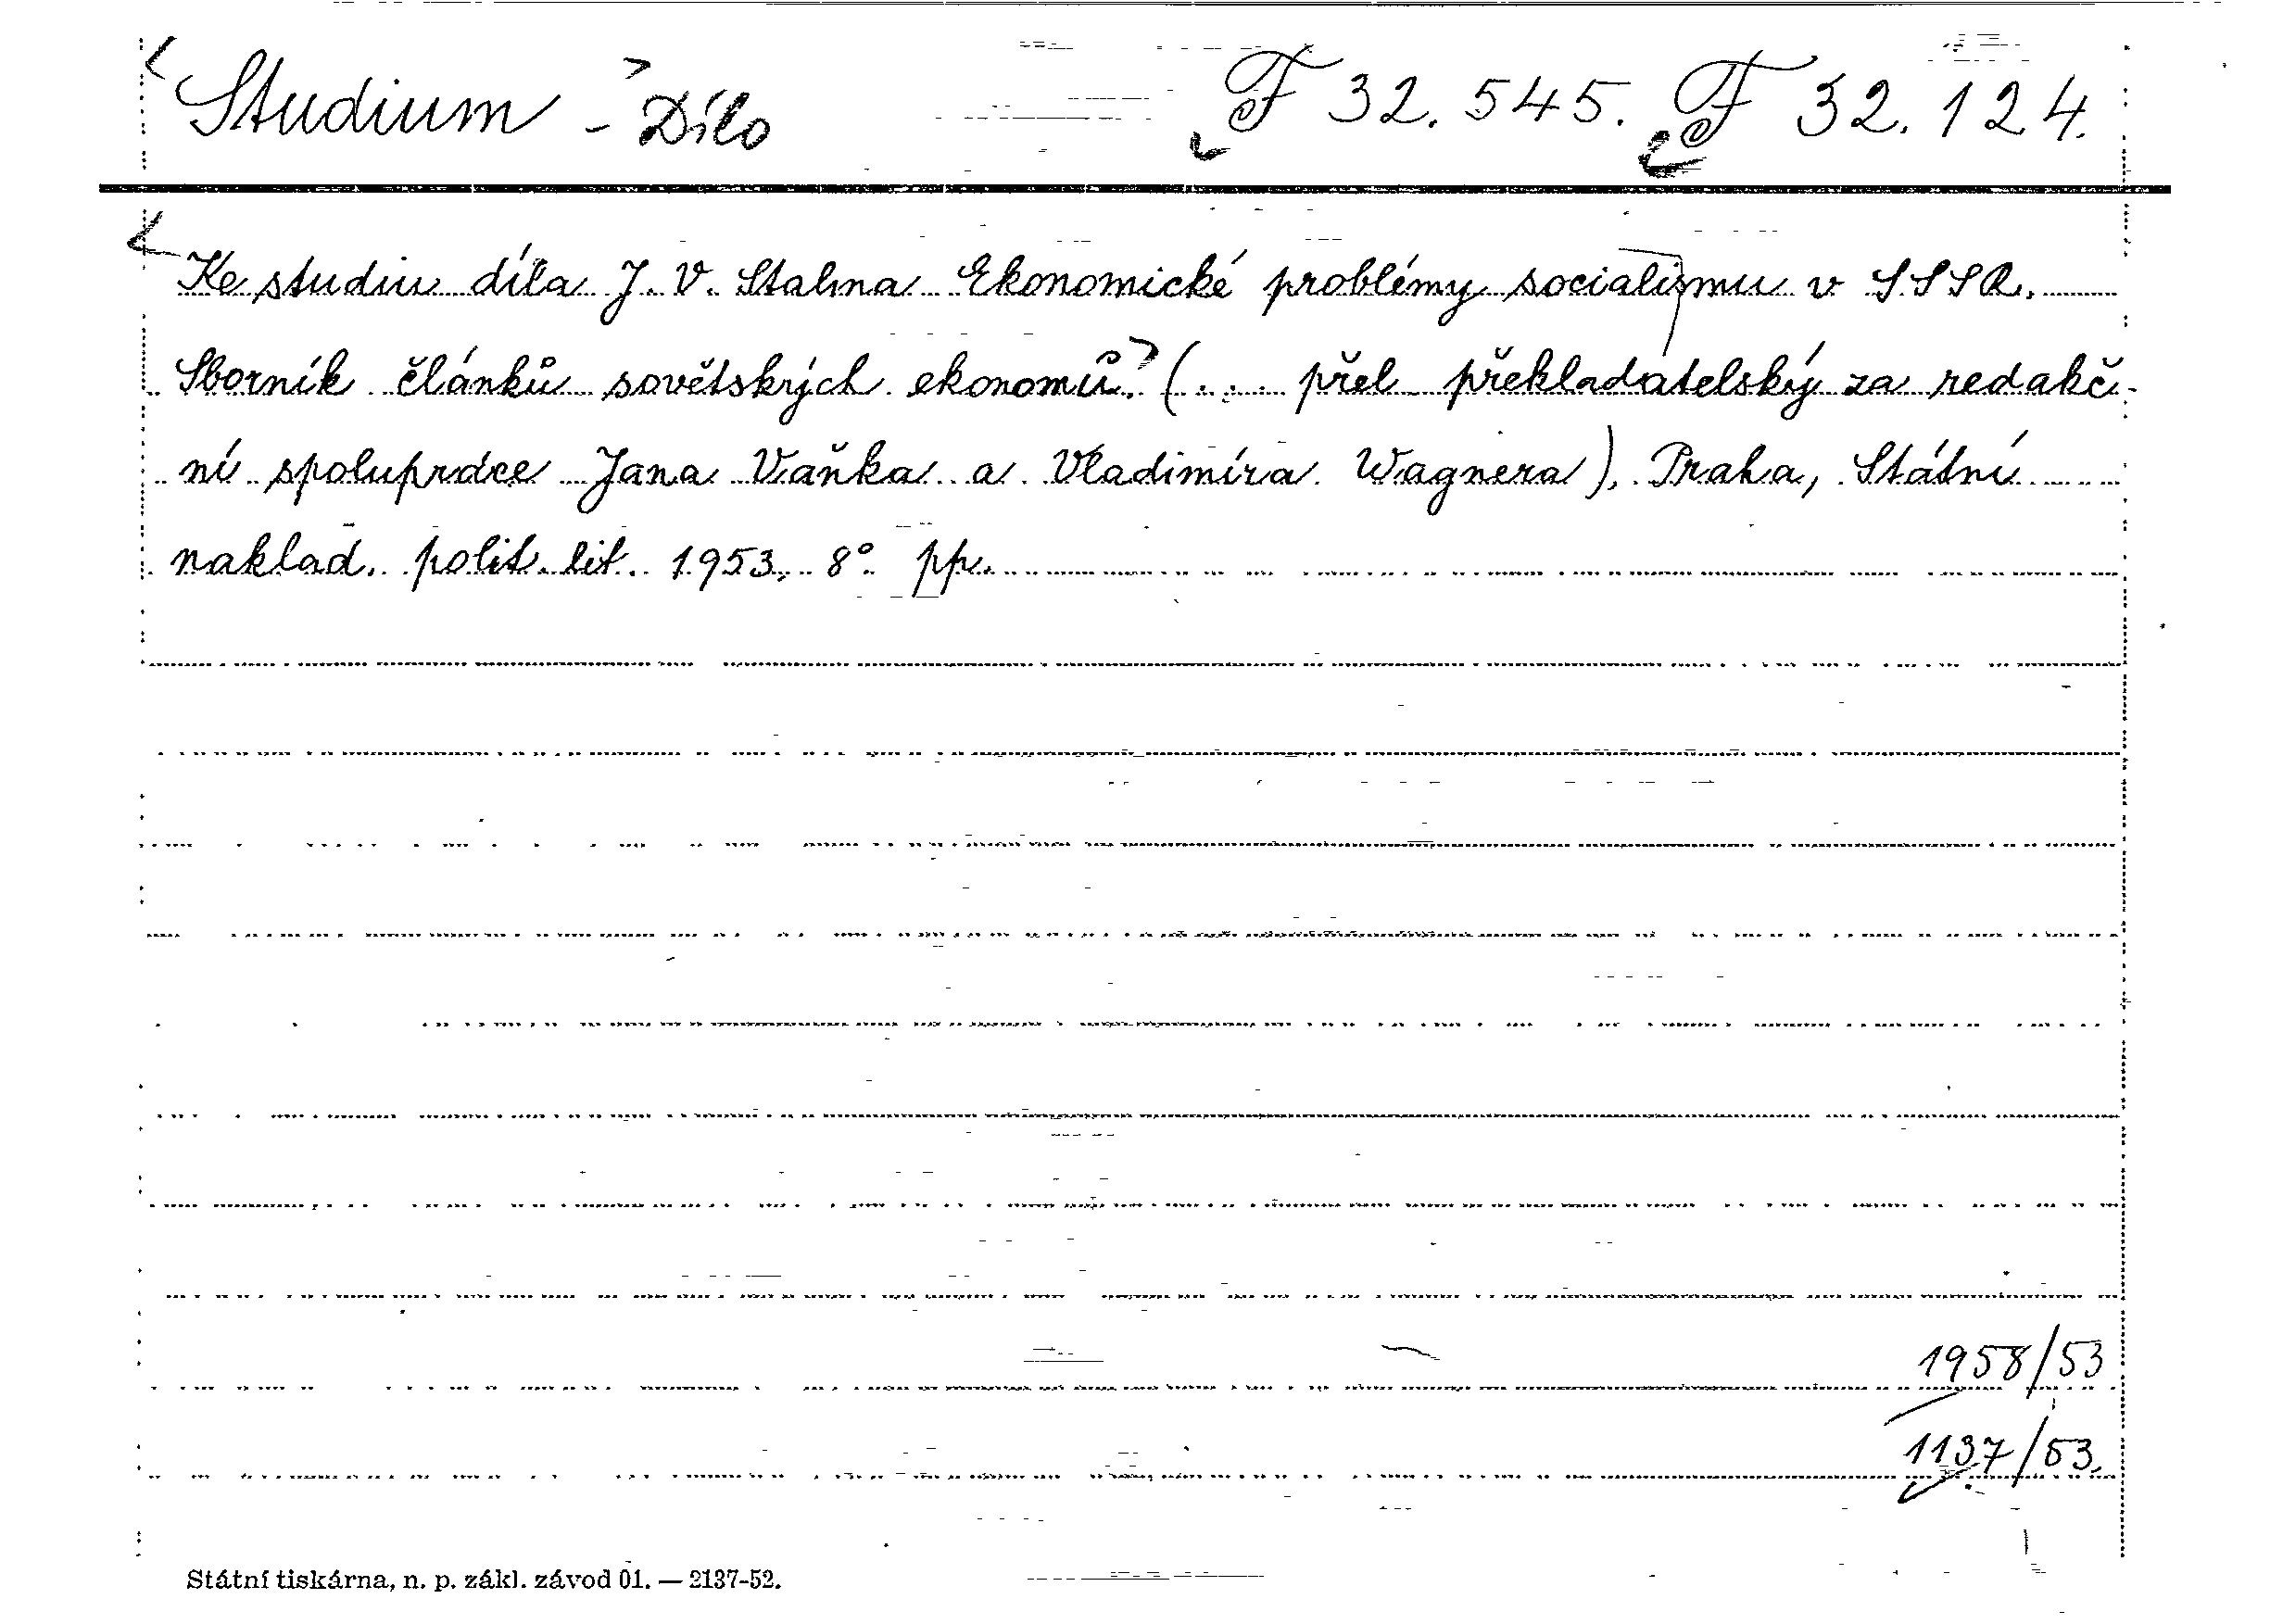 Studium - Dílo F 32.545. F 32.124.
Ke studiu díla J. V. Stalina Ekonomické problémy socialismu v SSSR.
Sborník článků sovětských ekonomů. (... přel. překladatelský za redakč-
ní spolupráce Jana Vaňka a Vladimíra Wagnera), Praha, Státní
naklad. polit. lit. 1953, 8° pp.
1958/53
1137/53.
Státní tiskárna, n. p. zákl. závod 01. — 2137-52.